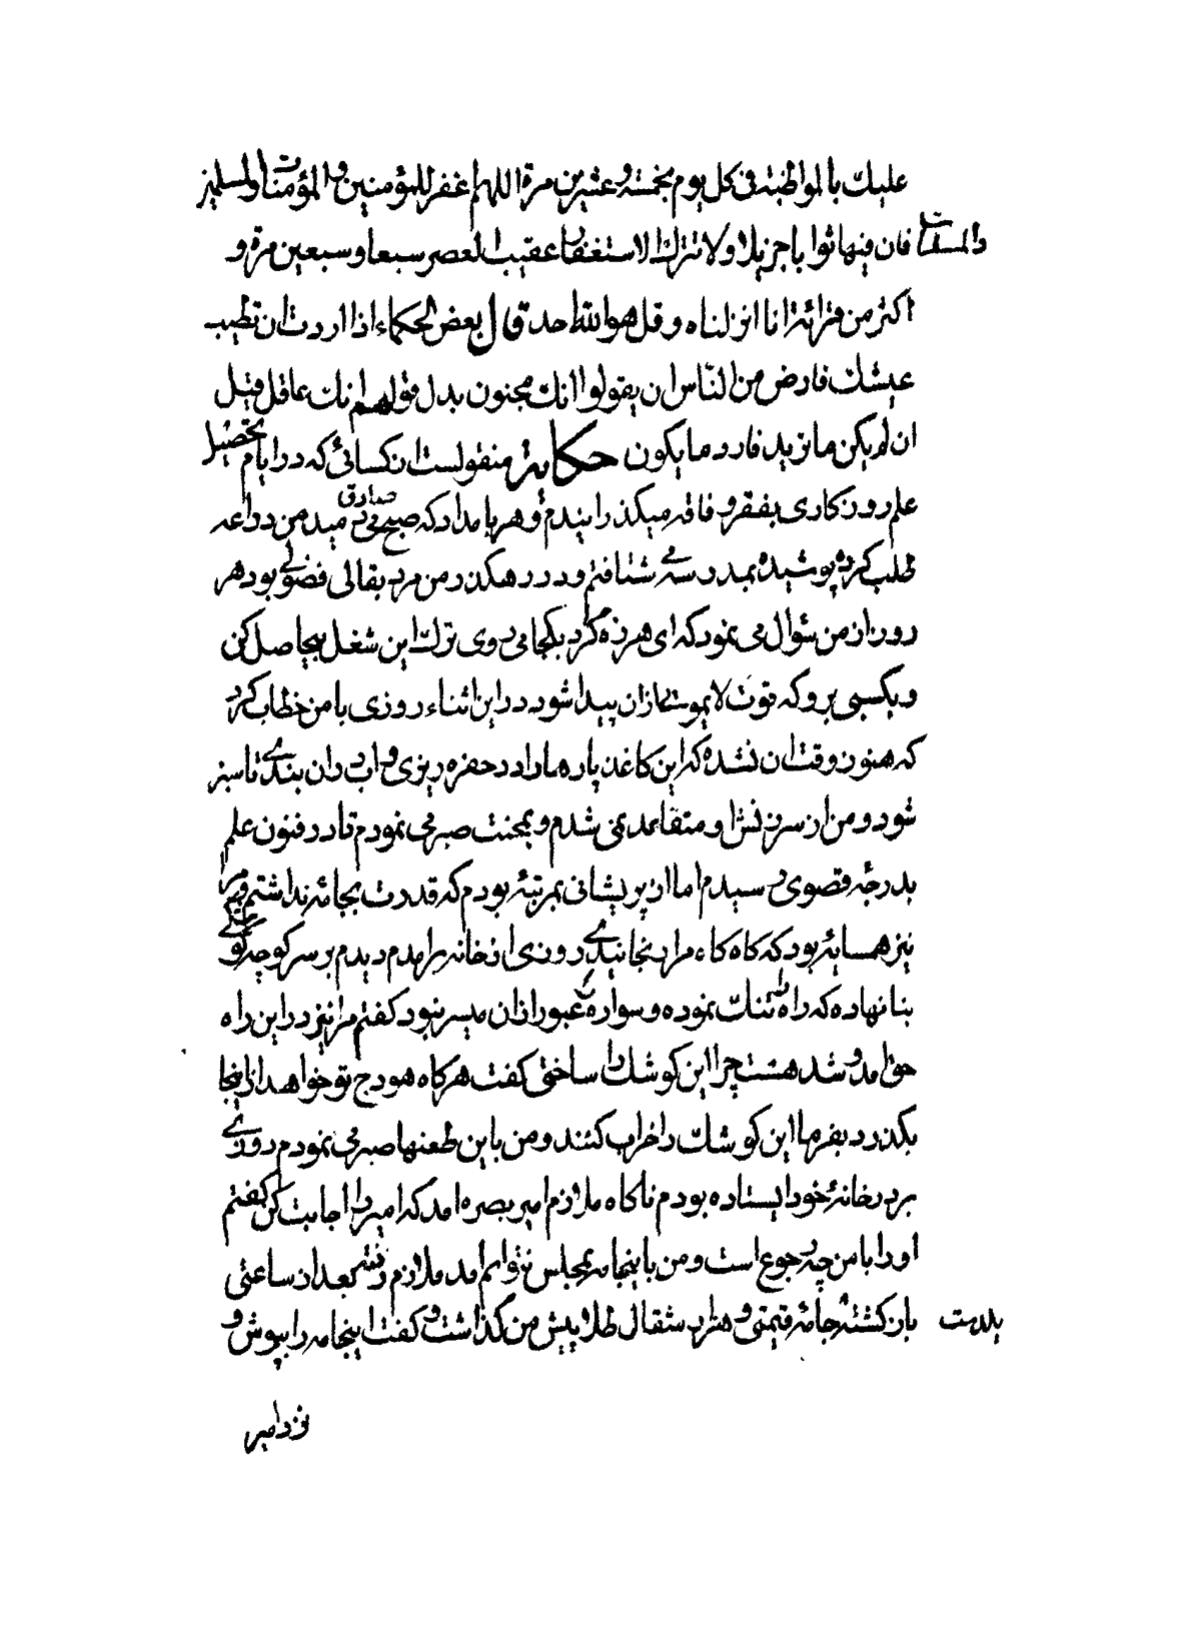 عليك بالمواظبة فی كل يوم بخمسة وعشرين مرة اللهم اغفر للمؤمنين والمؤمنات والمسلمين
والمسلمات فان فيها ثوابا جزيلا ولا تترك الاستغفار عقيب العصر سبعا وسبعين مرة و
اكثر من قرائة انا انزلناه و قل هو الله احد قال بعض الحكماء اذا اردت ان تطيب
عيشك فارض من الناس ان يقولوا انك مجنون بدل قولهم انك عاقل قيل
ان لم يكن ما تريد فارد ما يكون حكاية منقولست از كسائی كه در ايام تحصيل
علم روزكاری بفقر و فاقه ميكذرانيدم و هر بامداد كه صبح صادق می دميد من دراعه
طلب كرده پوشيده بمدرسه می شتافتم و در رهكذر من مرد بقالی فضولی بود هر
روز از من سؤال می نمود كه ای هرزه كرد بكجا می روی ترك اين شغل بيحاصل كن
و بكسبی برو كه قوت لا يموت از ان پيدا شود در اين اثناء روزی با من خطاب كرد
كه هنوز وقت ان نشده كه اين كاغذ پاره ها را در حفره ريزی و اب در ان بندی تا سبز
شود و من از سرزنش او متقاعد نمی شدم و بمحنت صبر می نمودم تا در فنون علم
بدرجۀ قصوی رسيدم اما از پريشانی بمرتبۀ بودم كه قدرت بجامۀ نداشتم و مرا
نيز همسايۀ بود كه كاه كاه مرا رنجانيدی روزی از خانه برامدم ديدم بر سر كوچه
بنا نهاده كه راه تنك نموده و سواره عبور از ان ميسر نبود كفتم مرا نيز در اين راه
حق امد و شد هست چرا اين كوشك را ساختی كفت هركاه هودج تو خواهد از اينجا
بكذرد بفرما اين كوشك را خراب كنند و من با اين طعنها صبر می نمودم روزی
بر در خانۀ خود ايستاده بودم ناكاه ملازم امير بصره امد كه امير را اجابت كن كفتم
او را با من چه رجوع است و من با اينجامه بمجلس نتوانم امد ملازم رفته بعد از ساعتی
باز كشته جامۀ قيمتی و هزار مثقال طلا پيش من كذاشت و كفت اينجامه را بپوش و
نزد امير